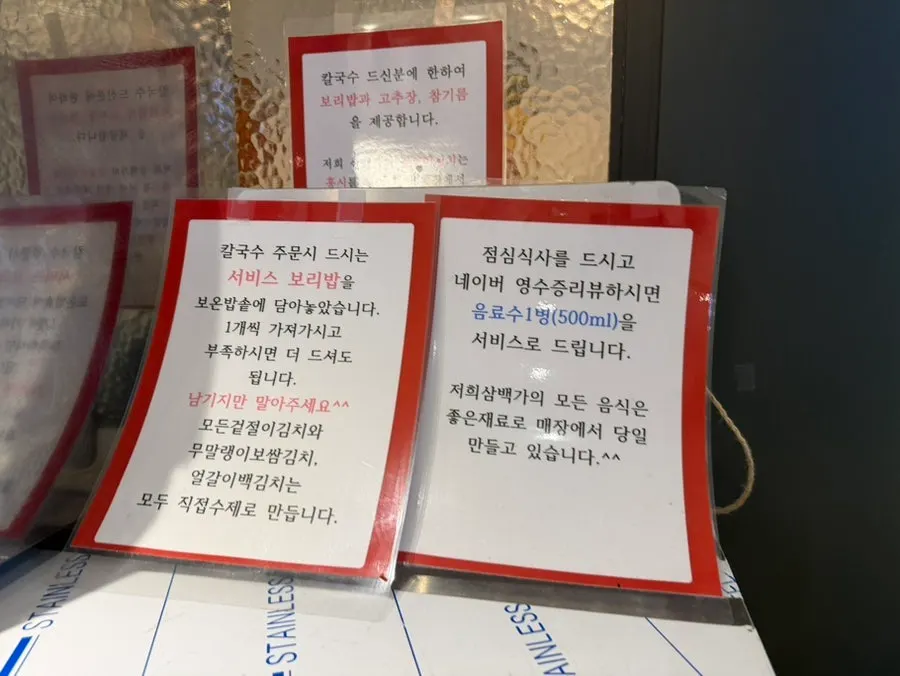 칼국수 드신분에 한하여
보리밥과 고추장, 참기름
을 제공합니다.
저희
홍시를
칼국수 주문시 드시는
서비스 보리밥을
보온밥솥에 담아놓았습니다.
1개씩 가져가시고
부족하시면 더 드셔도
됩니다.
남기지만 말아주세요^^
모든겉절이김치와
무말랭이보쌈김치,
얼갈이백김치는
모두 직접수제로 만듭니다.
점심식사를 드시고
네이버 영수증리뷰하시면
음료수1병(500ml)을
서비스로 드립니다.
저희삼백가의 모든 음식은
좋은재료로 매장에서 당일
만들고 있습니다.^^
STAINLESS
STAINLESS
STAINLESS